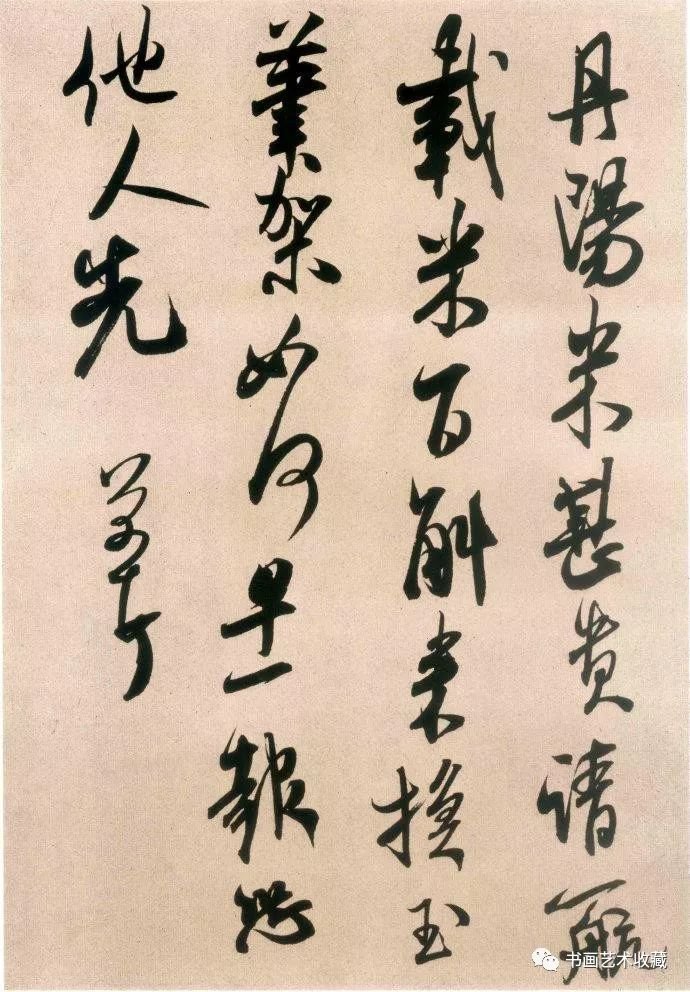 丹陽米甚貴請一航
載米百斛来換玉
筆架如何早一報恐
他人先 芾頓首
书画艺术收藏